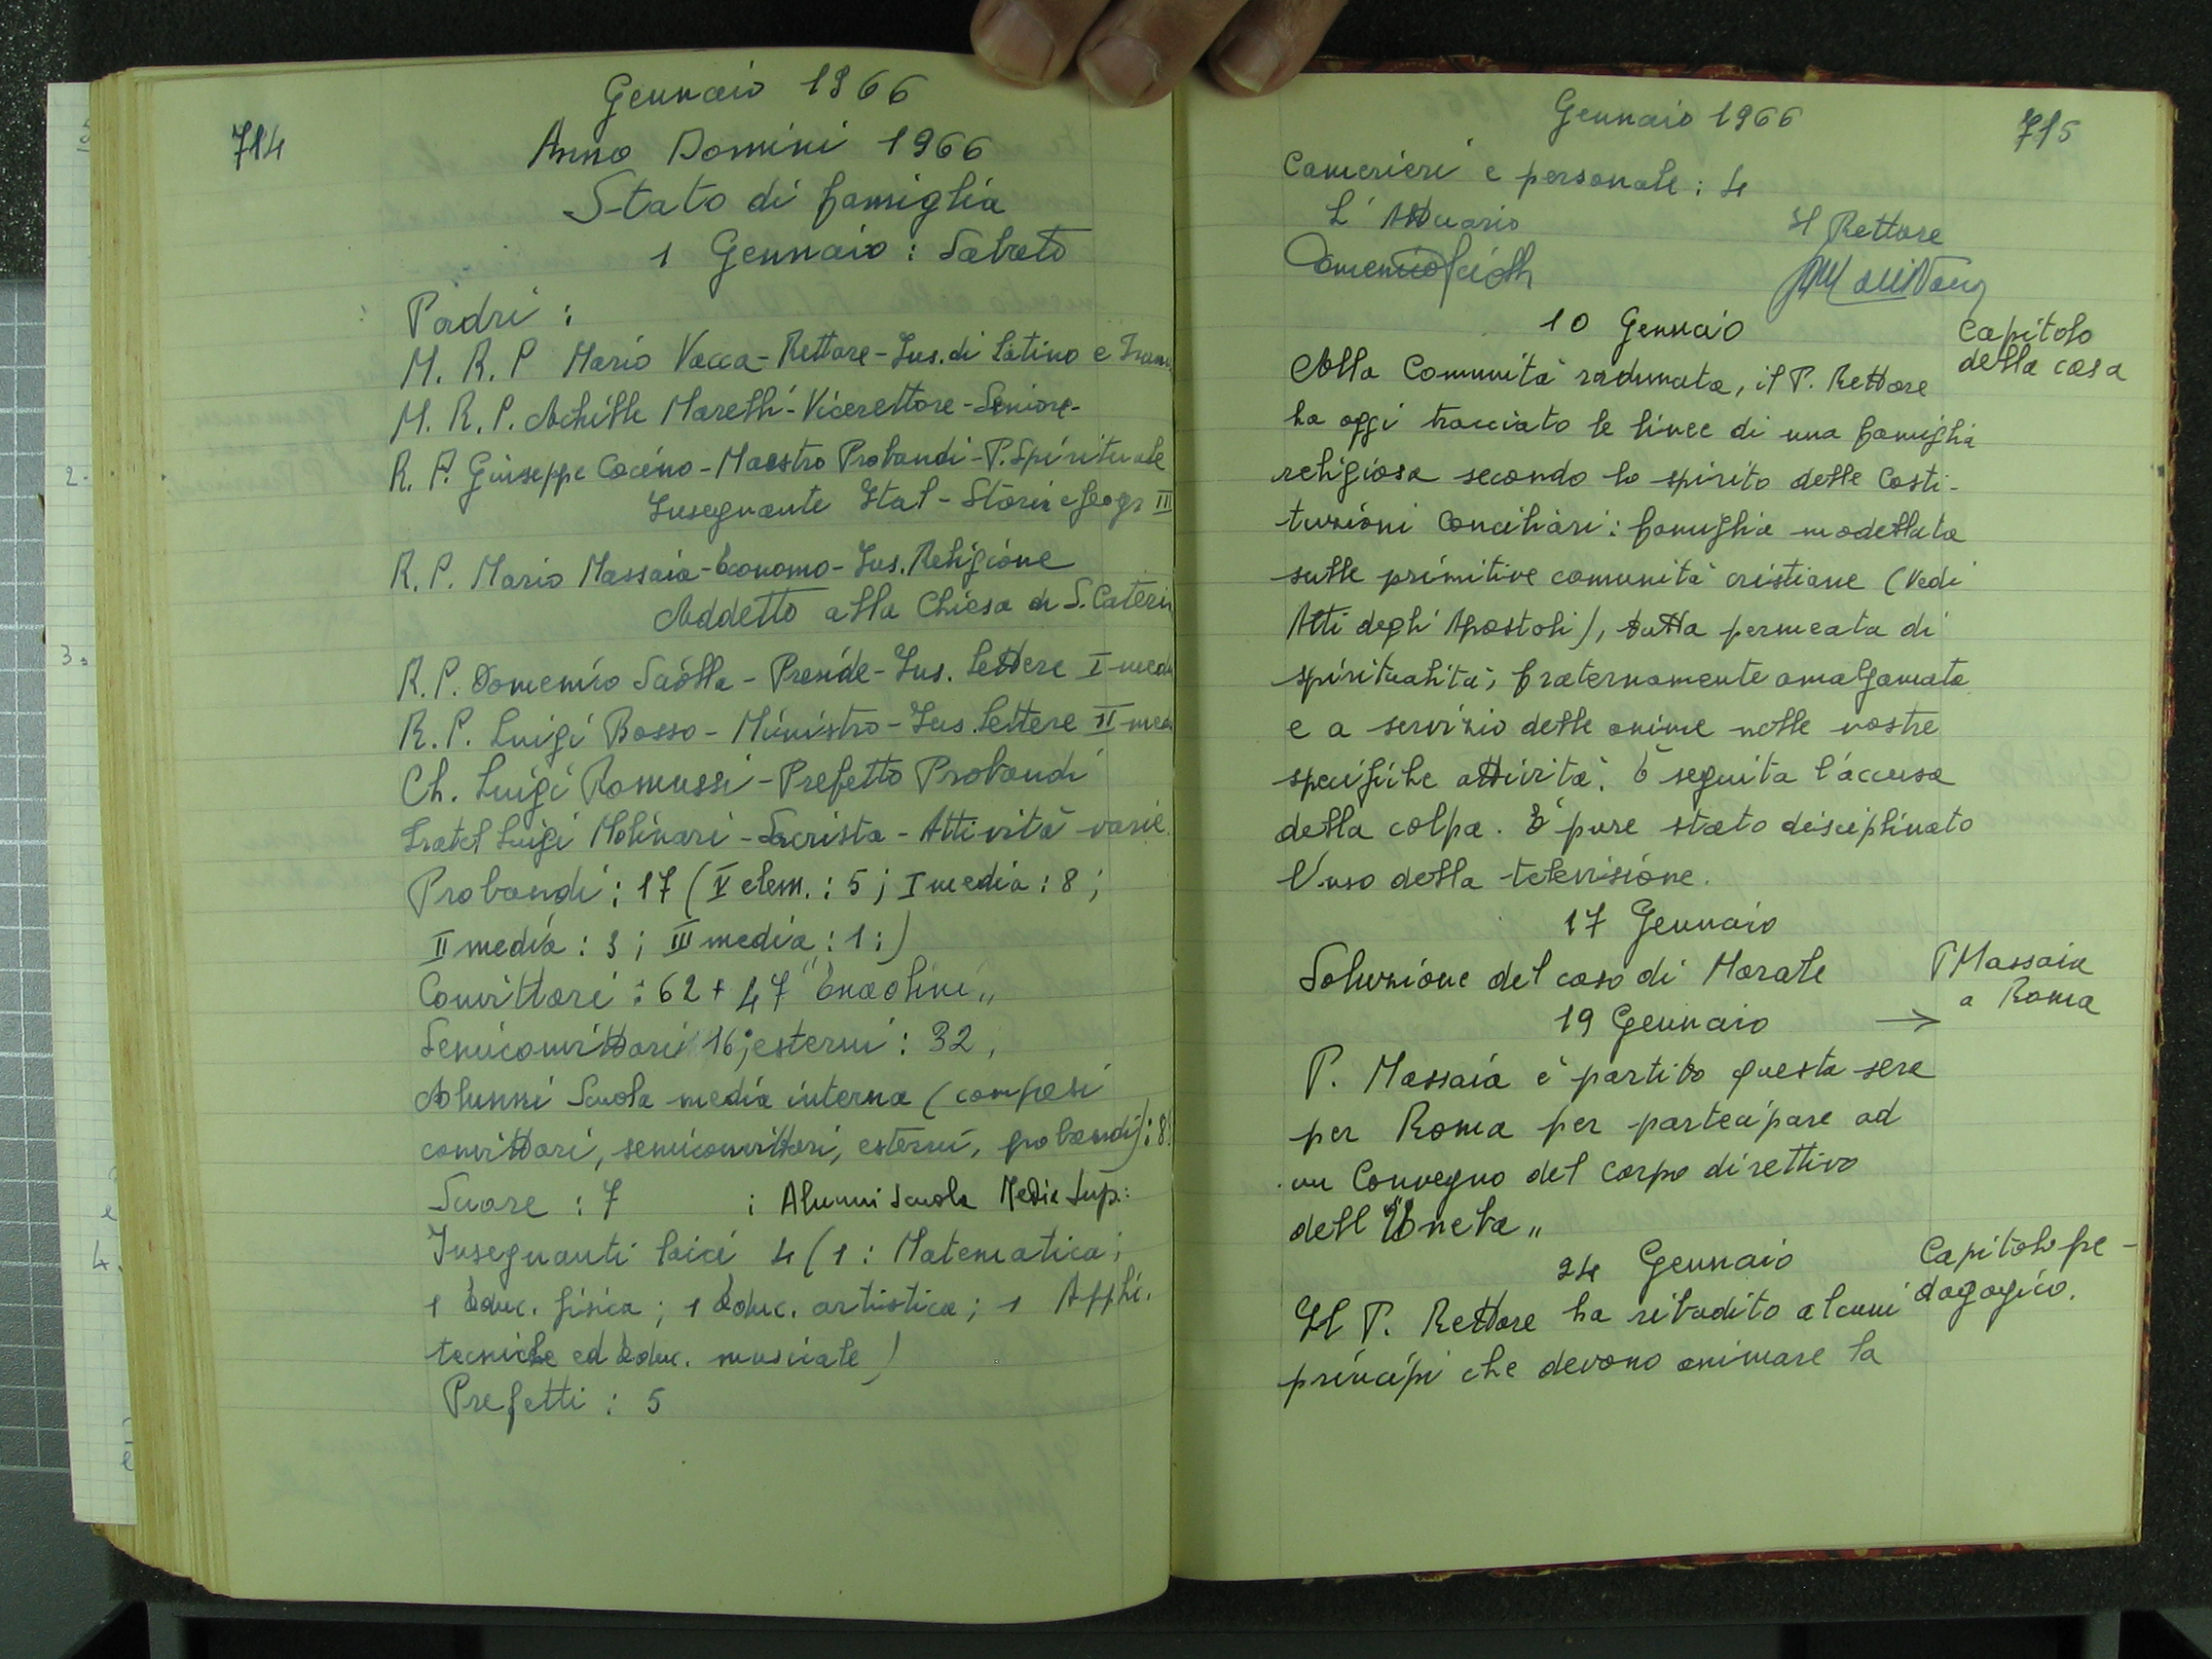 714
Gennaio 1966
Anno Domini 1966
Stato di famiglia
1 Gennaio : Sabato
Padri :
M. R. P Mario Vacca - Rettore - Ins. di Latino e
M. R. P. Achille Marelli - Vicerettore - Seniore -
R. P. Giuseppe Cocino - Maestro Probandi - P. Spirituale
Insegnante Ital - Storia e Geogr III
R. P. Mario Massaia - Economo - Ins. Religione
Addetto alla Chiesa di S. Caterin
R. P. Domenico Saolla - Preside - Ins. Lettere I med
R. P. Luigi Bosso - Ministro - Ins. Lettere II med
Ch. Luigi Romussi - Prefetto Probandi
Fratel Luigi Molinari - Sacrista - Attività varie
Probandi : 17 (V elem. : 5 ; I media : 8 ;
II media : 3 ; III media : 1 ;)
Convittori : 62 + 47 "Enaolini"
Semiconvittori 16 ; esterni : 32,
Alunni Scuola media interna (compresi
convittori, semiconvittori, esterni, probandi) : 8
Suore : 7 ; Alunni Scuola Media Sup. :
Insegnanti laici 4 (1 : Matematica ;
1 Educ. fisica ; 1 Educ. artistica ; 1 Applic.
tecniche ed Educ. musicale)
Prefetti : 5
Gennaio 1966
715
Camerieri e personale : 4
L'Attuario
Il Rettore
10 Gennaio
Capitolo
della casa
Alla Comunità radunata, il P. Rettore
ha oggi tracciato le linee di una famiglia
religiosa secondo lo spirito delle Costi-
tuzioni Conciliari : famiglia modellata
sulle primitive comunità cristiane (Vedi
Atti degli Apostoli), tutta permeata di
spiritualità, fraternamente amalgamata
e a servizio delle anime nelle nostre
specifiche attività. È seguita l'accusa
della colpa. È pure stato disciplinato
l'uso della televisione.
17 Gennaio
Soluzione del caso di Morale
P Massaia
a Roma
19 Gennaio →
P. Massaia è partito questa sera
per Roma per partecipare ad
un Convegno del corpo direttivo
dell'
24 Gennaio
Capitolo pe-
dagogico.
Il P. Rettore ha ribadito alcuni
principi che devono animare la